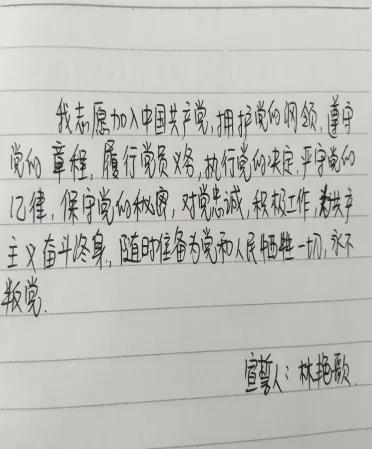 我志愿加入中国共产党,拥护党的纲领,遵守
党的章程,履行党员义务,执行党的决定,严守党的
纪律,保守党的秘密,对党忠诚,积极工作,为共产
主义奋斗终身,随时准备为党和人民牺牲一切,永不
叛党.
宣誓人:林艳歌.